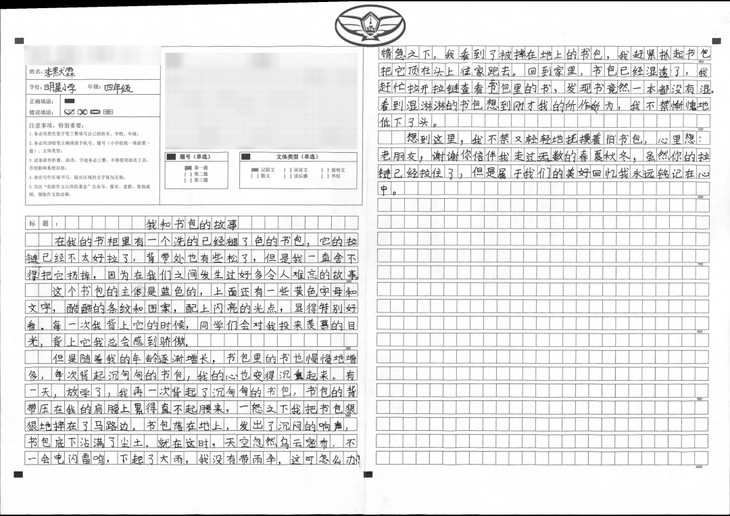 姓名：李思霖
学校：明星小学 年级：四年级
正确填涂：
错误填涂：
注意事项，特别重要：
题号（单选）
第一题
第二题
第三题
文体类型（单选）
记叙文 议论文 说明文
散文 读后感 书信
标题：我和书包的故事
在我的书柜里有一个洗的已经褪了色的书包，它的拉
链已经不太好拉了，背带处也有些松了，但是我一直舍不
得把它扔掉，因为在我们之间发生过好多令人难忘的故事
这个书包的主体是蓝色的，上面还有一些黄色字母和
文字，酷酷的条纹和图案，配上闪亮的光点，显得特别好
看。每一次我背上它的时候，同学们会对我投来羡慕的目
光，背上它我总会感到骄傲。
但是随着我的年龄逐渐增长，书包里的书也慢慢地增
多，每次背起沉甸甸的书包，我的心也变得沉重起来。有
一天，放学了，我再一次背起了沉甸甸的书包，书包的背
带压在我的肩膀上累得直不起腰来，一怒之下我把书包狠
狠地摔在了马路边，书包落在地上，发出了沉闷的响声，
书包底下沾满了尘土，就在这时，天空忽然乌云密布，不
一会电闪雷鸣，下起了大雨，我没有带雨伞，这可怎么办？
情急之下，我看到了被摔在地上的书包，我赶紧抓起书包
把它顶在头上往家跑去。回到家里，书包已经湿透了，我
赶忙拉开拉链查看书包里的书，发现书竟然一本都没有湿。
看到湿淋淋的书包想到刚才我的所作所为，我不禁惭愧地
低下了头。
想到这里，我不禁又轻轻地抚摸着旧书包，心里想：
老朋友，谢谢你陪伴我走过无数的春夏秋冬，虽然你的拉
链已经拉住了，但是属于我们的美好回忆我永远铭记在心
中。